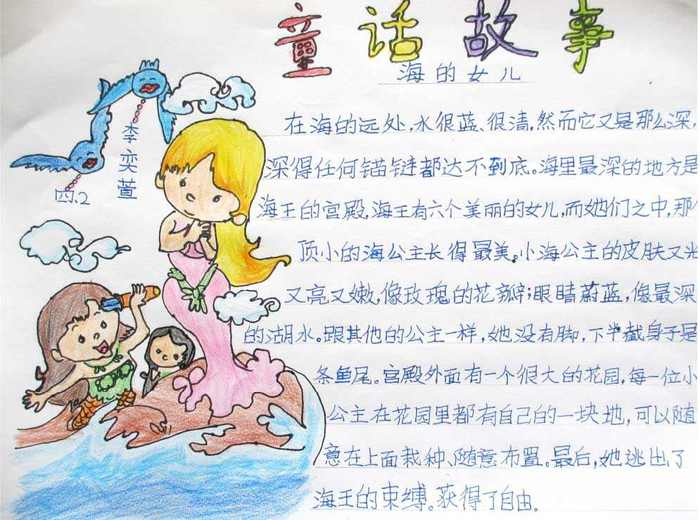 童话故事
海的女儿
李奕萱
四.2
在海的远处,水很蓝、很清,然而它又是那么深,
深得任何锚链都达不到底。海里最深的地方是
海王的宫殿,海王有六个美丽的女儿,而她们之中,那
顶小的海公主长得最美。小海公主的皮肤又光
又亮又嫩,像玫瑰的花瓣;眼睛蔚蓝,像最深
的湖水。跟其他的公主一样,她没有脚,下半截身子是
条鱼尾。宫殿外面有一个很大的花园,每一位小
公主在花园里都有自己的一块地,可以随
意在上面栽种、随意布置。最后,她逃出了
海王的束缚。获得了自由。